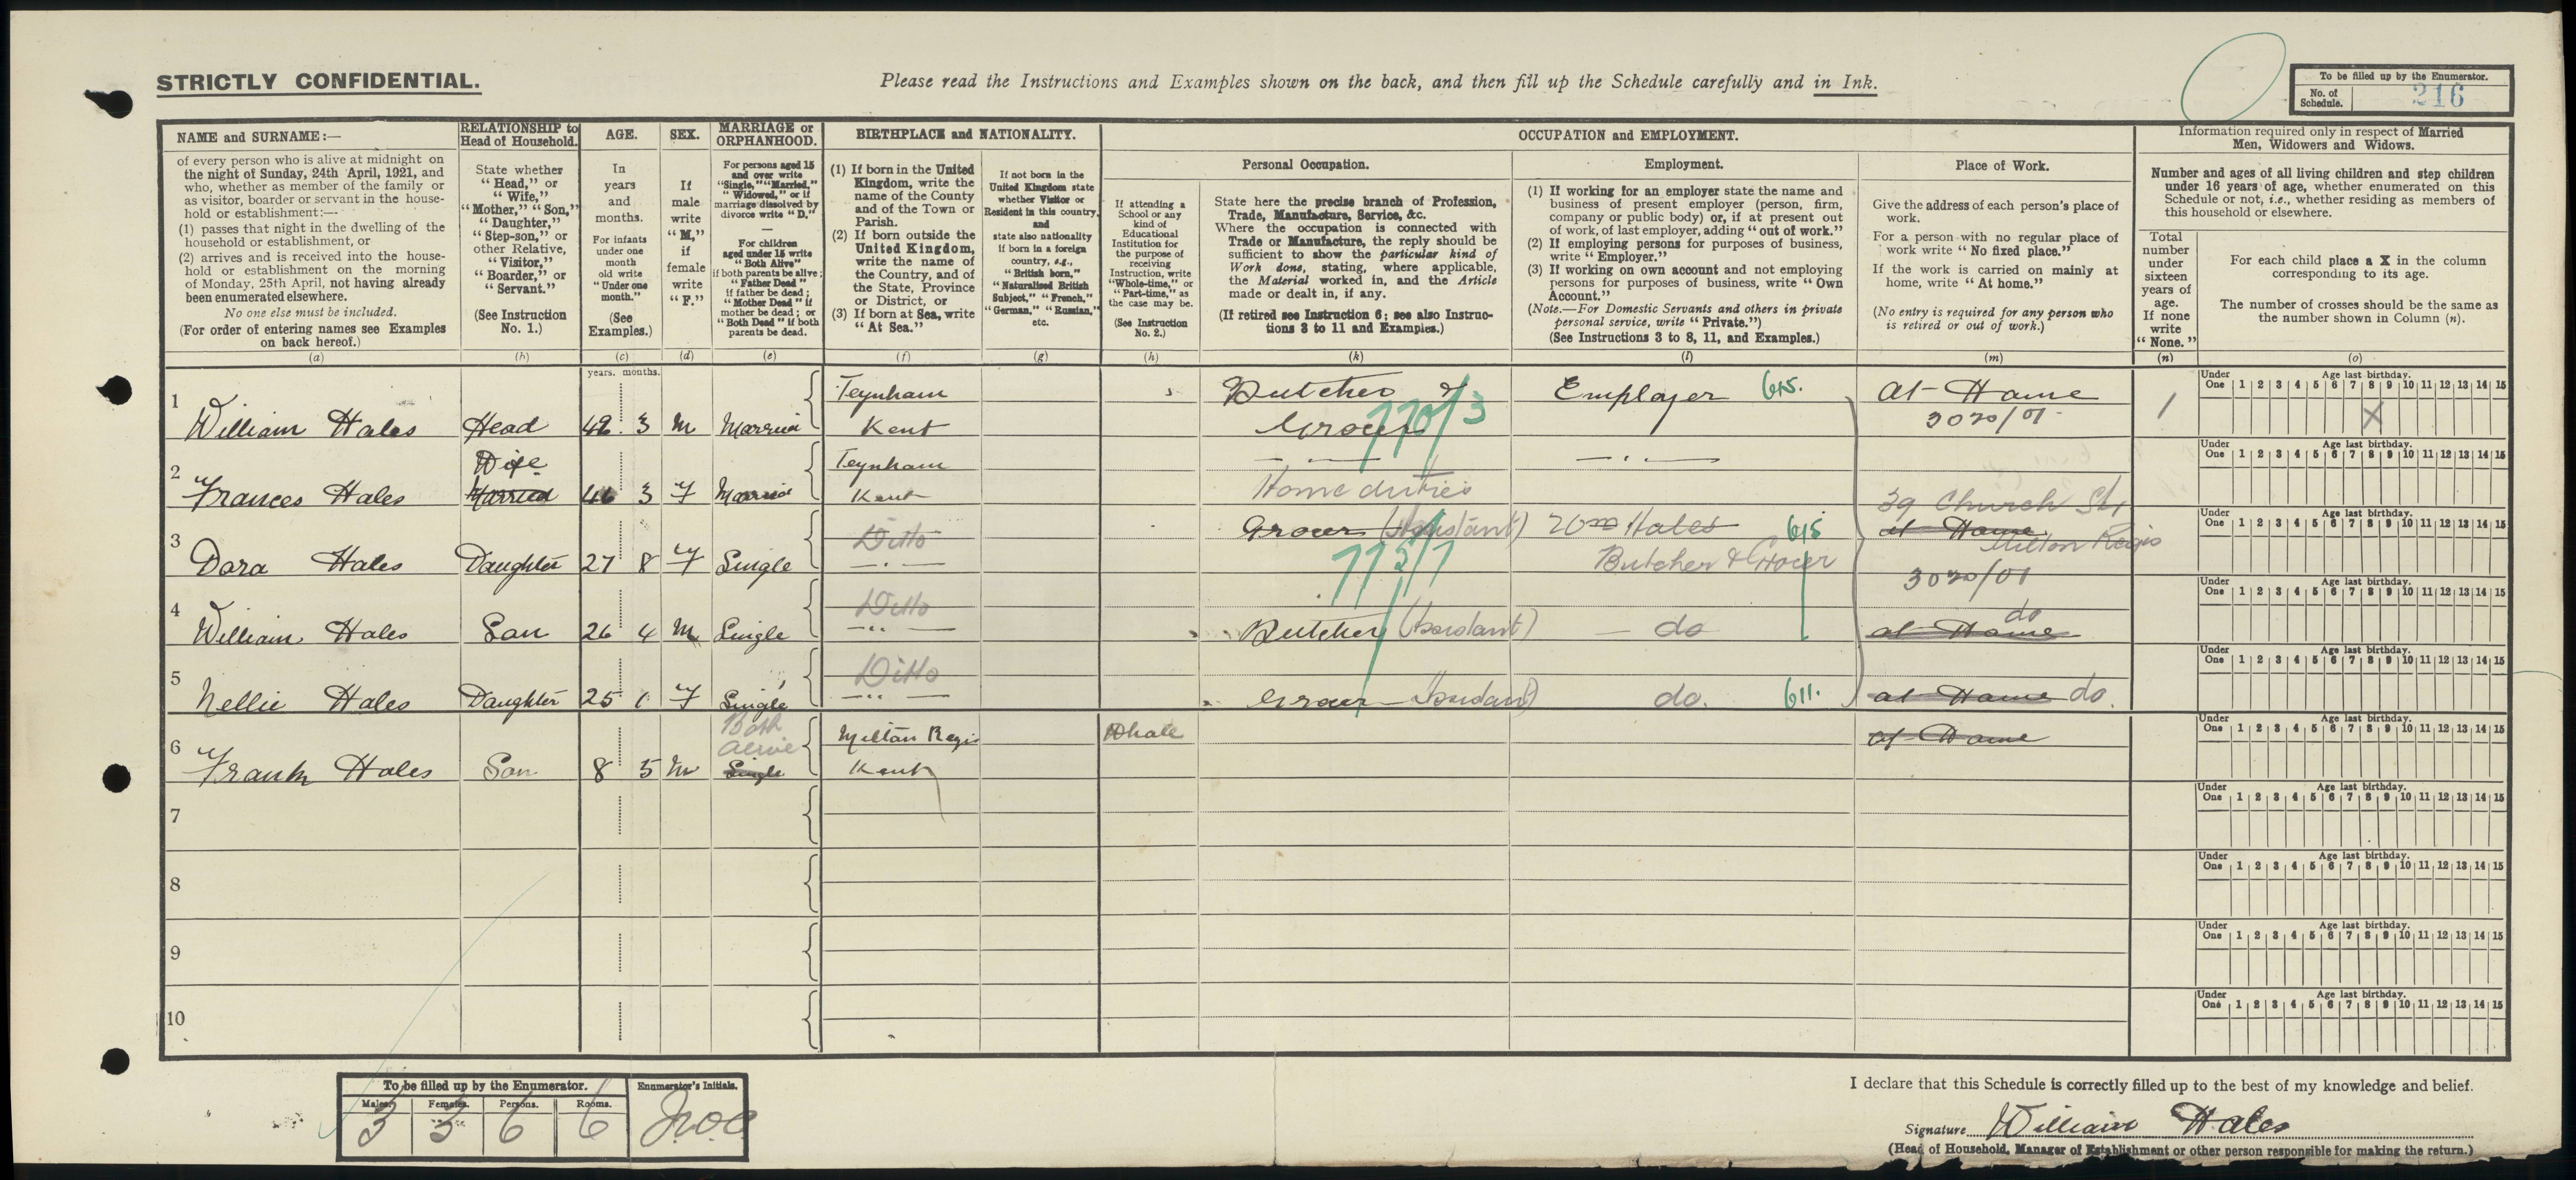 STRICTLY CONFIDENTIAL.
Please read the Instructions and Examples shown on the back, and then fill up the Schedule carefully and in Ink.
To be filled up by the Enumerator.
No. of Schedule. 216
NAME and SURNAME:—
of every person who is alive at midnight on
the night of Sunday, 24th April, 1921, and
who, whether as member of the family or
as visitor, boarder or servant in the house-
hold or establishment:—
(1) passes that night in the dwelling of the
household or establishment, or
(2) arrives and is received into the house-
hold or establishment on the morning
of Monday, 25th April, not having already
been enumerated elsewhere.
No one else must be included.
(For order of entering names see Examples
on back hereof.)
(a)
RELATIONSHIP to
Head of Household.
State whether
"Head," or
"Wife,"
"Mother," "Son,"
"Daughter,"
"Step-son," or
other Relative,
"Visitor,"
"Boarder," or
"Servant."
(See Instruction
No. 1.)
(b)
AGE.
In
years
and
months.
For infants
under one
month
old write
"Under one
month."
(See
Examples.)
(c)
SEX.
If
male
write
"M,"
if
female
write
"F."
(d)
MARRIAGE or
ORPHANHOOD.
For persons aged 15
and over write
"Single," "Married,"
"Widowed," or if
marriage dissolved by
divorce write "D."
—
For children
aged under 15 write
"Both Alive"
if both parents be alive;
"Father Dead"
if father be dead;
"Mother Dead" if
mother be dead; or
"Both Dead" if both
parents be dead.
(e)
BIRTHPLACE and NATIONALITY.
(1) If born in the United
Kingdom, write the
name of the County
and of the Town or
Parish.
(2) If born outside the
United Kingdom,
write the name of
the Country, and of
the State, Province
or District, or
(3) If born at Sea, write
"At Sea."
(f)
If not born in the
United Kingdom state
whether Visitor or
Resident in this country,
and
state also nationality
if born in a foreign
country, e.g.,
"British born,"
"Naturalised British
Subject," "French,"
"German," "Russian,"
etc.
(g)
OCCUPATION and EMPLOYMENT.
If attending a
School or any
kind of
Educational
Institution for
the purpose of
receiving
Instruction, write
"Whole-time," or
"Part-time," as
the case may be.
(See Instruction
No. 2.)
(h)
Personal Occupation.
State here the precise branch of Profession,
Trade, Manufacture, Service, &c.
Where the occupation is connected with
Trade or Manufacture, the reply should be
sufficient to show the particular kind of
Work done, stating, where applicable,
the Material worked in, and the Article
made or dealt in, if any.
(If retired see Instruction 6; see also Instruc-
tions 3 to 11 and Examples.)
(k)
Employment.
(1) If working for an employer state the name and
business of present employer (person, firm,
company or public body) or, if at present out
of work, of last employer, adding "out of work."
(2) If employing persons for purposes of business,
write "Employer."
(3) If working on own account and not employing
persons for purposes of business, write "Own
Account."
(Note.—For Domestic Servants and others in private
personal service, write "Private.")
(See Instructions 3 to 8, 11, and Examples.)
(l)
Place of Work.
Give the address of each person's place of
work.
For a person with no regular place of
work write "No fixed place."
If the work is carried on mainly at
home, write "At home."
(No entry is required for any person who
is retired or out of work.)
(m)
Information required only in respect of Married
Men, Widowers and Widows.
Number and ages of all living children and step children
under 16 years of age, whether enumerated on this
Schedule or not, i.e., whether residing as members of
this household or elsewhere.
Total
number
under
sixteen
years of
age.
If none
write
"None."
(n)
For each child place a X in the column
corresponding to its age.
The number of crosses should be the same as
the number shown in Column (n).
(o)
years. months.
1 William Hales Head 48 3 M Married Teynham Kent Butcher & Grocer 770/3 Employer 615. At Home 3020/01 1
Under One Age last birthday. 1 2 3 4 5 6 7 8 9 10 11 12 13 14 15
X
2 Frances Hales Wife Married 46 3 F Married Teynham Kent Home duties
Under One Age last birthday. 1 2 3 4 5 6 7 8 9 10 11 12 13 14 15
3 Dora Hales Daughter 27 8 F Single Ditto Grocer (Assistant) 772/1 Wm Hales Butcher & Grocer 615 39 Church St, Milton Regis at Home 3020/01
Under One Age last birthday. 1 2 3 4 5 6 7 8 9 10 11 12 13 14 15
4 William Hales Son 26 4 M Single Ditto Butcher (Assistant) do do at Home
Under One Age last birthday. 1 2 3 4 5 6 7 8 9 10 11 12 13 14 15
5 Nellie Hales Daughter 25 1 F Single Ditto Grocer Assistant) do. 611. at Home do.
Under One Age last birthday. 1 2 3 4 5 6 7 8 9 10 11 12 13 14 15
6 Frank Hales Son 8 5 M Both alive Single Milton Regis Kent Whole at Home
Under One Age last birthday. 1 2 3 4 5 6 7 8 9 10 11 12 13 14 15
7
Under One Age last birthday. 1 2 3 4 5 6 7 8 9 10 11 12 13 14 15
8
Under One Age last birthday. 1 2 3 4 5 6 7 8 9 10 11 12 13 14 15
9
Under One Age last birthday. 1 2 3 4 5 6 7 8 9 10 11 12 13 14 15
10
Under One Age last birthday. 1 2 3 4 5 6 7 8 9 10 11 12 13 14 15
To be filled up by the Enumerator.
Males. Females. Persons. Rooms.
3 3 6 6
Enumerator's Initials.
I declare that this Schedule is correctly filled up to the best of my knowledge and belief.
Signature William Hales
(Head of Household, Manager of Establishment or other person responsible for making the return.)